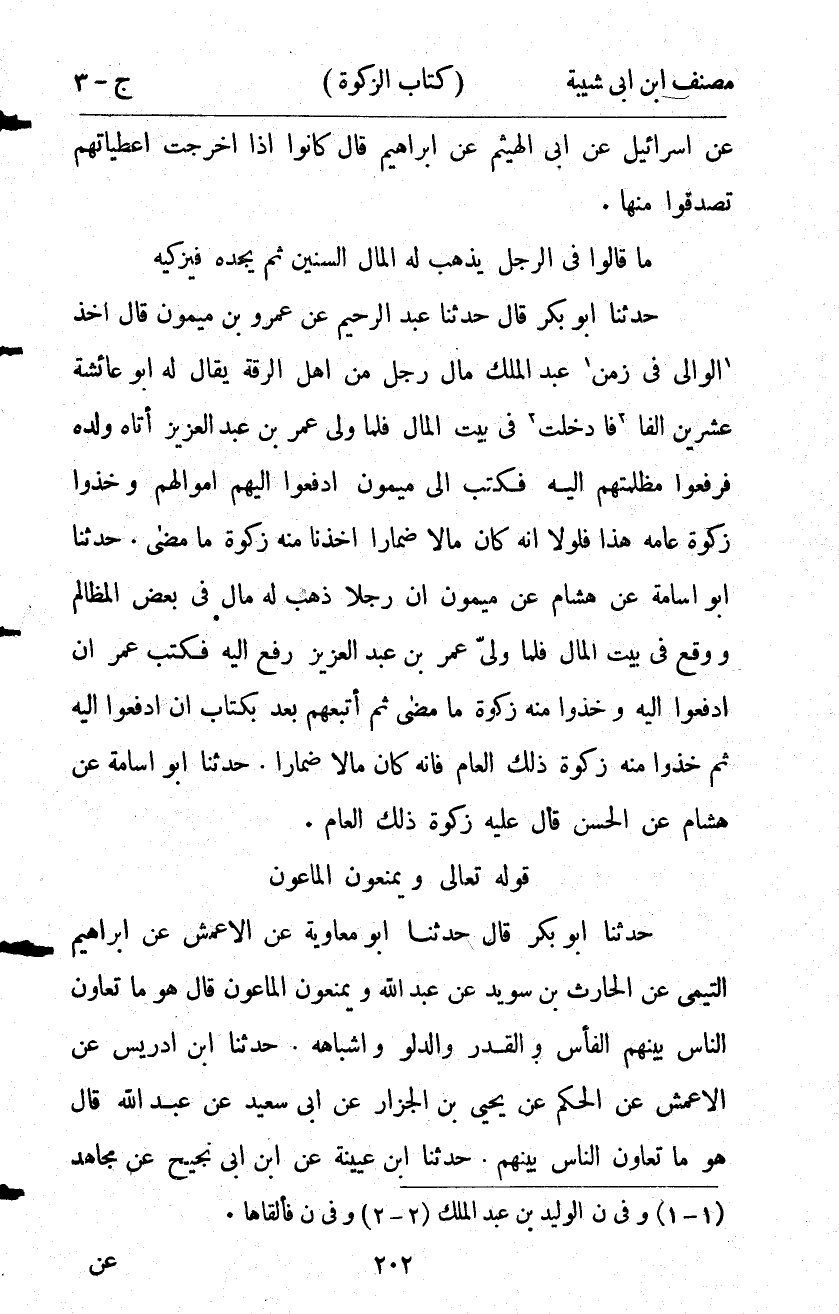 مصنف ابن ابى شيبة (كتاب الزكوة) ج - ٣
عن اسرائيل عن ابى الهيثم عن ابراهيم قال كانوا اذا اخرجت اعطياتهم
تصدقوا منها .
ما قالوا فى الرجل يذهب له المال السنين ثم يجده فيزكيه
حدثنا ابو بكر قال حدثنا عبد الرحيم عن عمرو بن ميمون قال اخذ
١الوالى فى زمن١ عبد الملك مال رجل من اهل الرقة يقال له ابو عائشة
عشرين الفا ٢فا دخلت٢ فى بيت المال فلما ولى عمر بن عبد العزيز أتاه ولده
فرفعوا مظلمتهم اليه فكتب الى ميمون ادفعوا اليهم اموالهم و خذوا
زكوة عامه هذا فلولا انه كان مالا ضمارا اخذنا منه زكوة ما مضى . حدثنا
ابو اسامة عن هشام عن ميمون ان رجلا ذهب له مال فى بعض المظالم
و وقع فى بيت المال فلما ولىّ عمر بن عبد العزيز رفع اليه فكتب عمر ان
ادفعوا اليه و خذوا منه زكوة ما مضى ثم أتبعهم بعد بكتاب ان ادفعوا اليه
ثم خذوا منه زكوة ذلك العام فانه كان مالا ضمارا . حدثنا ابو اسامة عن
هشام عن الحسن قال عليه زكوة ذلك العام .
قوله تعالى و يمنعون الماعون
حدثنا ابو بكر قال حدثنا ابو معاوية عن الاعمش عن ابراهيم
التيمى عن الحارث بن سويد عن عبد الله و يمنعون الماعون قال هو ما تعاون
الناس بينهم الفأس و القدر والدلو و اشباهه . حدثنا ابن ادريس عن
الاعمش عن الحكم عن يحيى بن الجزار عن ابى سعيد عن عبد الله قال
هو ما تعاون الناس بينهم . حدثنا ابن عيينة عن ابن ابى نجيح عن مجاهد
(١-١) و فى ن الوليد بن عبد الملك (٢-٢) و فى ن فألقاها .
٢٠٢ عن